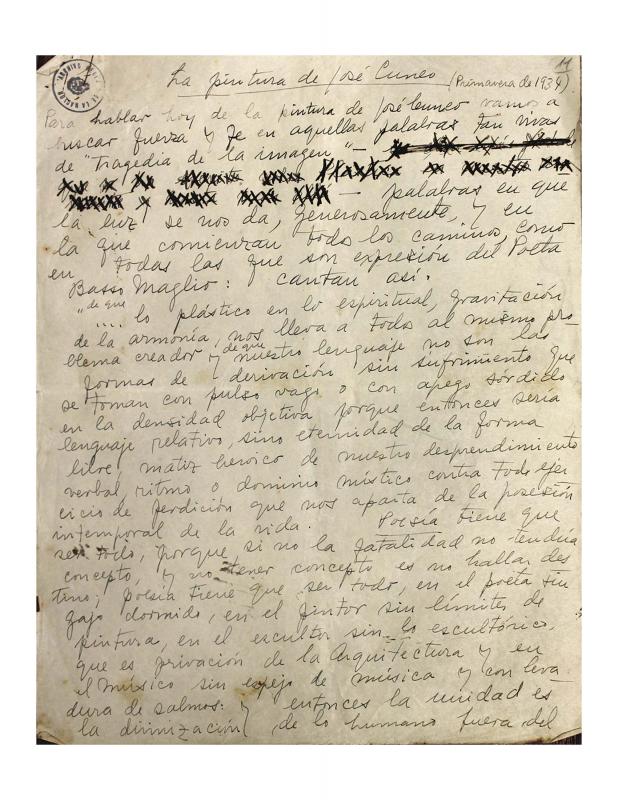 11
La pintura de José Cuneo (Primavera de 1934).
Para hablar hoy de la pintura de José Cuneo vamos a
buscar fuerza y fe en aquellas palabras tan vivas
de "Tragedia de la imagen" —
— palabras en que
la luz se nos da, generosamente, y en
la que comienzan todos los caminos, como
en todas las que son expresión del Poeta
Basso Maglio: cantan así.
"de que
.... lo plástico en lo espiritual, gravitación
de la armonía, nos lleva a todos al mismo pro-
blema creador y de que nuestro lenguaje no son las
formas de derivación sin sufrimiento que
se toman con pulso vago o con apego sórdido
en la densidad objetiva porque entonces sería
lenguaje relativo, sino eternidad de la forma
libre, matiz heroico de nuestro desprendimiento
verbal, ritmo o dominio místico contra todo ejer
cicio de perdición que nos aparta de la posesión
intemporal de la vida. Poesía tiene que
ser todo, porque, si no la fatalidad no tendría
concepto, y no tener concepto es no hallar des
tino; poesía tiene que ser todo, en el poeta sin
gajo dormido, en el pintor sin límites de
pintura, en el escultor sin lo escultórico,
que es privación de la Arquitectura y en
el músico sin espejo de música y con leva
dura de salmos: y entonces la unidad es
la divinización de lo humano fuera del